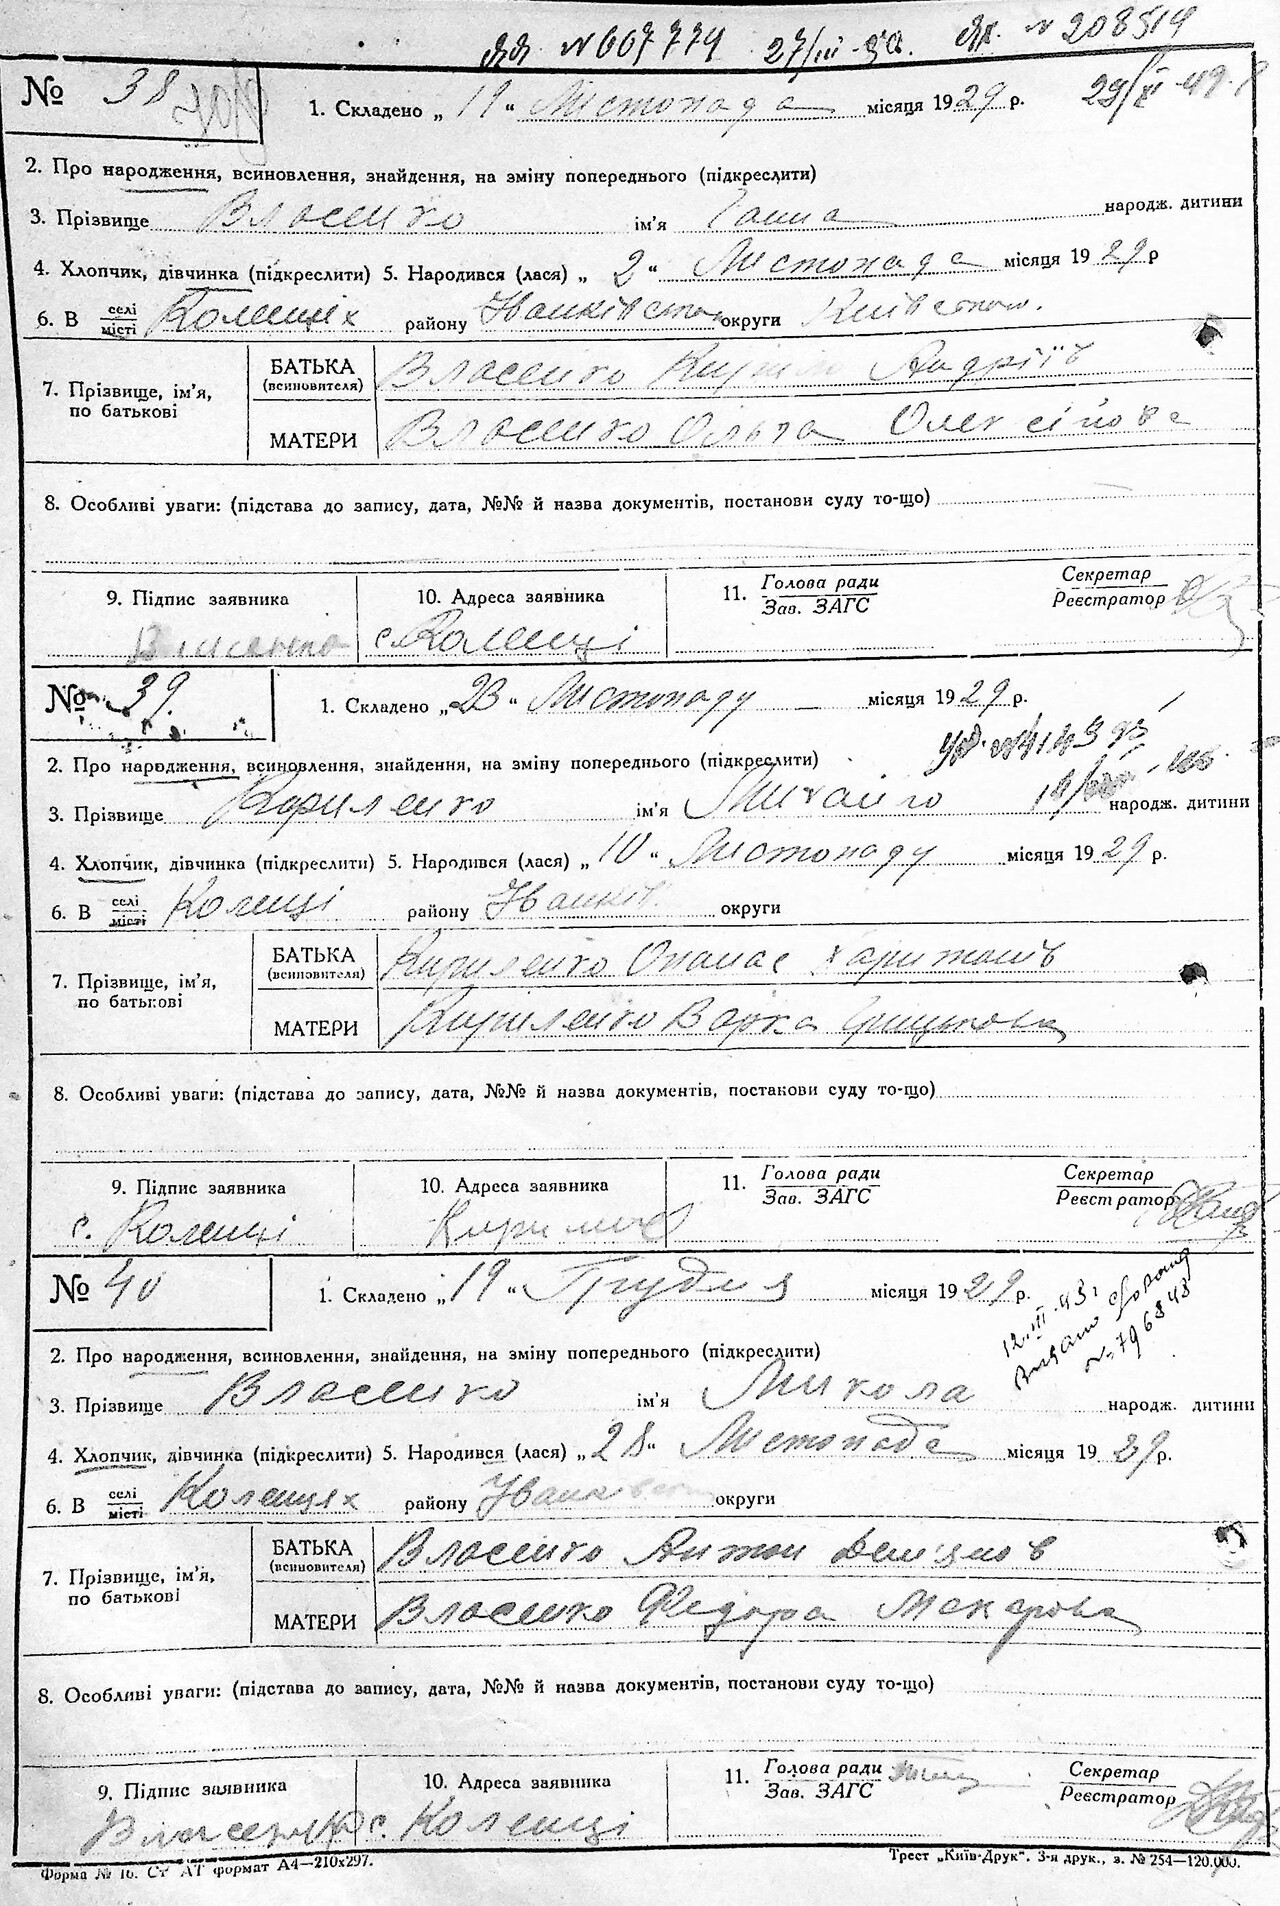 № 607774 27/III-50. № 208519
№ 38 1. Складено „19“ Листопада місяця 1929 р. 29/XI-49 р
2. Про народження, всиновлення, знайдення, на зміну попереднього (підкреслити)
3. Прізвище Власенко ім'я Ганна народж. дитини
4. Хлопчик, дівчинка (підкреслити) 5. Народився (лася) „2“ Листопада місяця 1929 р
6. В селі/місті Коленцях району Іванківськ округи Київської.
7. Прізвище, ім'я, по батькові
БАТЬКА (всиновителя) Власенко Кирило Андріїв
МАТЕРИ Власенко Ольга Олексіїовa
8. Особливі уваги: (підстава до запису, дата, №№ й назва документів, постанови суду то-що)
9. Підпис заявника 10. Адреса заявника 11. Голова ради Секретар
Зав. ЗАГС Реєстратор
с. Коленці
№ 39. 1. Складено „23“ Листопаду місяця 1929 р.
2. Про народження, всиновлення, знайдення, на зміну попереднього (підкреслити)
3. Прізвище Кириленко ім'я Михайло народж. дитини
4. Хлопчик, дівчинка (підкреслити) 5. Народився (лася) „10“ Листопаду місяця 1929 р.
6. В селі/місті Коленці району Іванків. округи
7. Прізвище, ім'я, по батькові
БАТЬКА (всиновителя) Кириленко Опанас Харитонів
МАТЕРИ Кириленко Варка Грицькова
8. Особливі уваги: (підстава до запису, дата, №№ й назва документів, постанови суду то-що)
9. Підпис заявника 10. Адреса заявника 11. Голова ради Секретар
Зав. ЗАГС Реєстратор
с. Коленці
№ 40 1. Складено „19“ Грудня місяця 1929 р.
12.III.43 г
№ 796848
2. Про народження, всиновлення, знайдення, на зміну попереднього (підкреслити)
3. Прізвище Власенко ім'я Микола народж. дитини
4. Хлопчик, дівчинка (підкреслити) 5. Народився (лася) „28“ Листопада місяця 1929 р.
6. В селі/місті Коленцях району округи
7. Прізвище, ім'я, по батькові
БАТЬКА (всиновителя) Власенко Антон
МАТЕРИ Власенко Федора Макарова
8. Особливі уваги: (підстава до запису, дата, №№ й назва документів, постанови суду то-що)
9. Підпис заявника 10. Адреса заявника 11. Голова ради Секретар
Зав. ЗАГС Реєстратор
с. Коленці
Форма № 16. формат А4—210х297. Трест „Київ-Друк“. 3-я друк., з. № 254—120.000.